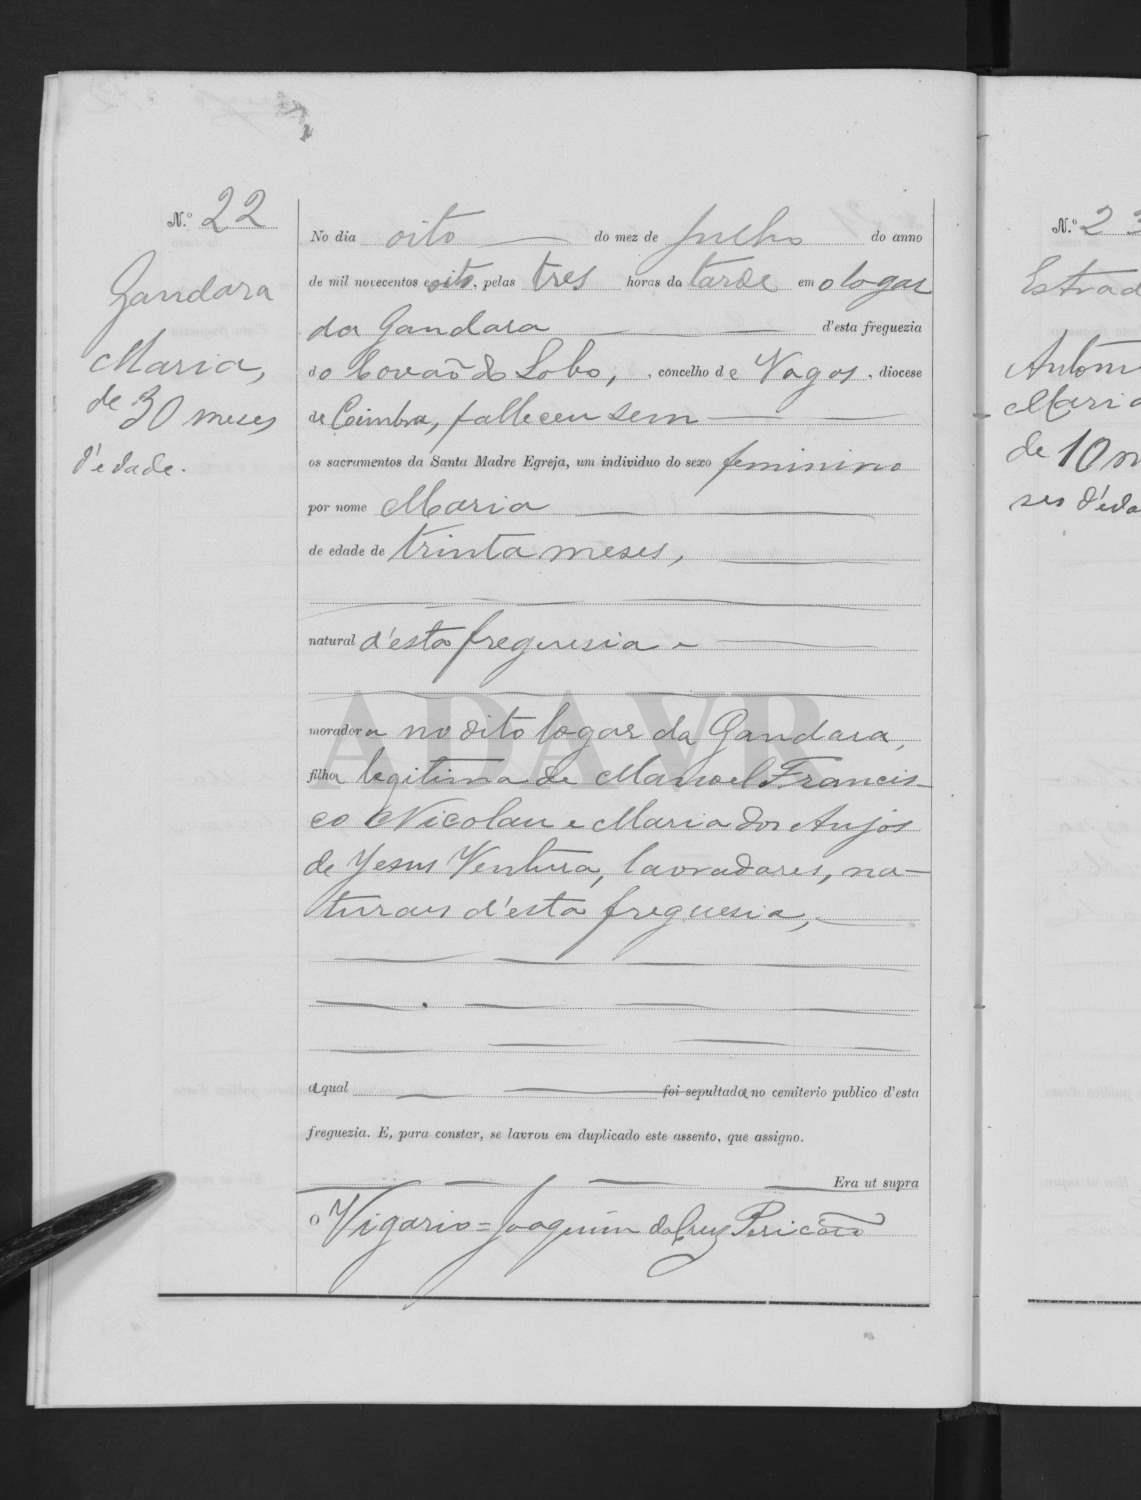 N.º 22
Gandara
Maria,
de 30 meses
d'edade.
No dia oito do mez de Julho do anno
de mil novecentos e oito, pelas tres horas da tarde em o logar
da Gandara d'esta freguezia
do Covão do Lobo, , concelho de Vagos, diocese
de Coimbra, falleceu sem
os sacramentos da Santa Madre Egreja, um individuo do sexo feminino
por nome Maria
de edade de trinta meses,
natural d'esta freguesia e
moradora no dito logar da Gandara,
filha legitima de Manoel Francis-
co Nicolau e Maria dos Anjos
de Jesus Ventura, lavradores, na-
turaes d'esta freguesia,
a qual foi sepultada no cemiterio publico d'esta
freguezia. E, para constar, se lavrou em duplicado este assento, que assigno.
Era ut supra
O Vigario = Joaquim da Cruz Pericão
ADAVR
N.º 23
Estrad
Antoni
Maria
de 10 m
ses d'eda